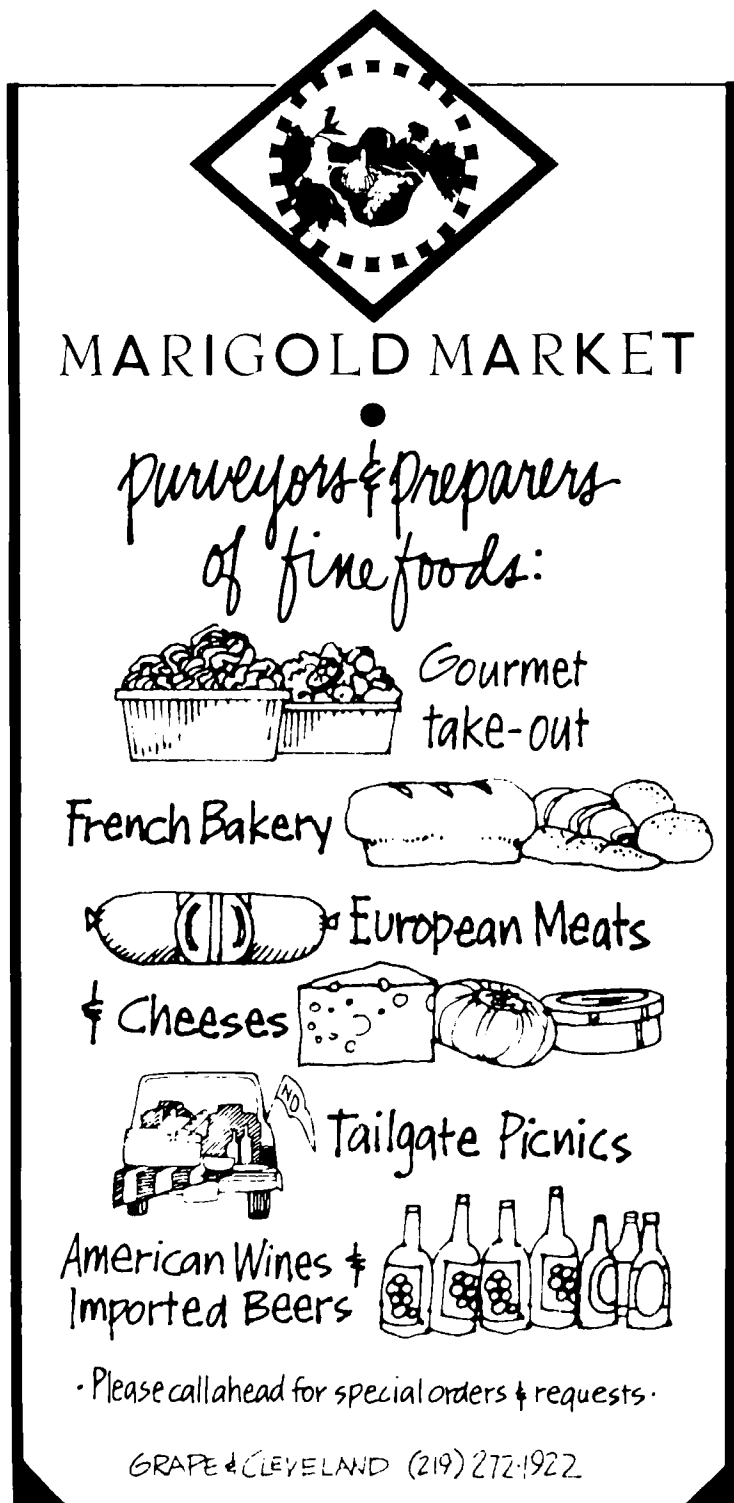 MARIGOLD MARKET
purveyors & preparers
of fine foods:
Gourmet
take-out
French Bakery
European Meats
& Cheeses
ND
Tailgate Picnics
American Wines &
Imported Beers
· Please call ahead for special orders & requests ·
GRAPE & CLEVELAND (219) 272·1922